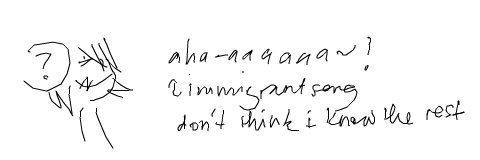 ?
aha-aaqaaa~?
i immigrant song
don't think i know the rest